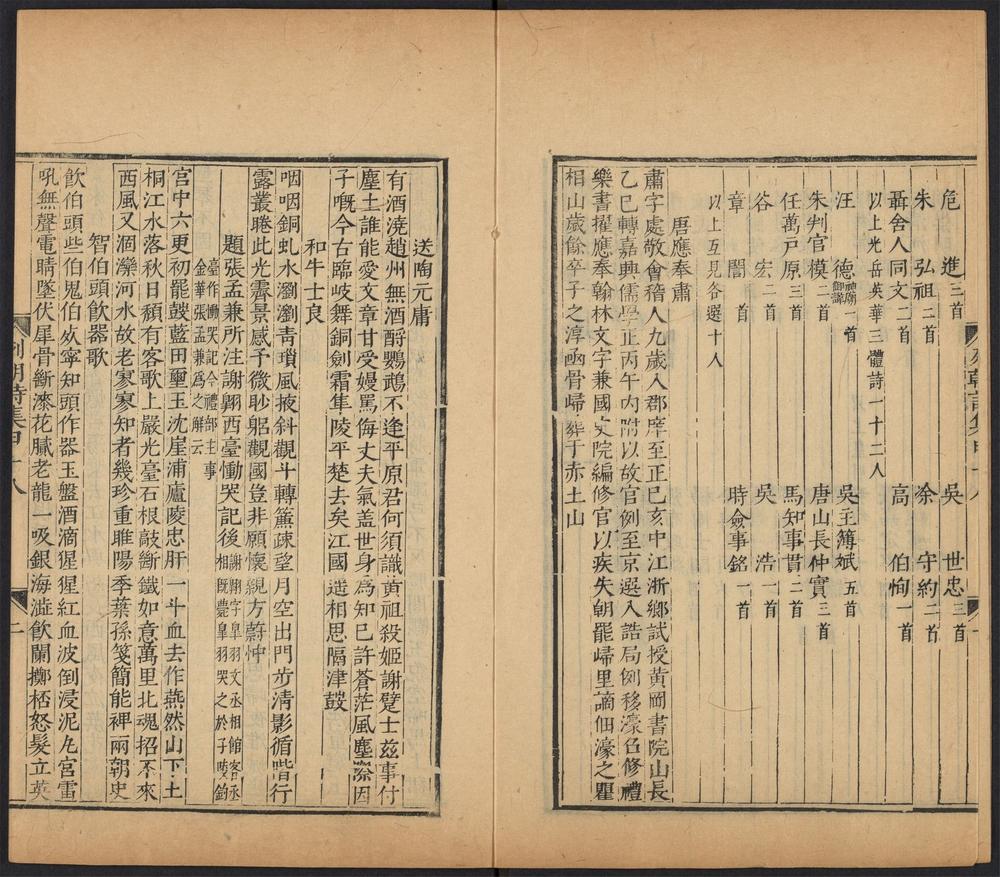 危　進三首　吳　世忠三首
朱　弘祖二首　涂　守約二首
聶舍人同文二首　高　伯恂一首
以上光岳英華三體詩一十二人
汪　德一首　吳主簿斌五首
朱判官模二首　唐山長仲實三首
任萬戶原三首　馬知事貫二首
谷　宏二首　吳　浩一首
章　誾一首　時僉事銘一首
以上互見各選十人
唐應奉肅
肅字處敬會稽人九歲入郡庠至正己亥中江浙鄉試授黃岡書院山長
乙巳轉嘉興儒學正丙午內附以故官例至京選入誥局例移濠邑修禮
樂書擢應奉翰林文字兼國史院編修官以疾失朝罷歸里謫佃濠之瞿
相山歲餘卒子之淳函骨歸葬于赤土山
送陶元庸
有酒澆趙州無酒酹鸚鵡不逢平原君何須識黃祖殺姬謝躄士茲事付
塵土誰能愛文章甘受嫚罵侮丈夫氣盖世身爲知已許蒼茫風塵際因
子嘅今古臨岐舞銅劍霜隼陵平楚去矣江國遥相思隔津鼓
和牛士良
咽咽銅虬水瀏瀏青瑣風掖斜觀斗轉簾疎望月空出門步清影循堦行
露叢睠此光霽景感予微眇躬觀國豈非願懷親方蔚忡
題張孟兼所注謝翶西臺慟哭記後謝翶字臯羽文丞相館客丞
相旣薨臯羽哭之於子陵釣
臺作慟哭記今禮部主事
金華張孟兼爲之解云
宮中六更初罷鼓藍田璽玉沈崖浦廬陵忠肝一斗血去作燕然山下土
桐江水落秋日頹有客歌上嚴光臺石根敲斷鐵如意萬里北魂招不來
西風又涸灤河水故老寥寥知者幾珍重睢陽季葉孫箋簡能裨兩朝史
智伯頭飲器歌
飲伯頭些伯鬼伯死寧知頭作器玉盤酒滴猩猩紅血波倒浸泥丸宮雷
吼無聲電睛墜伏犀骨斷漆花膩老龍一吸銀海溢飲闌擲桮怒髮立英
列朝詩集甲十八
二